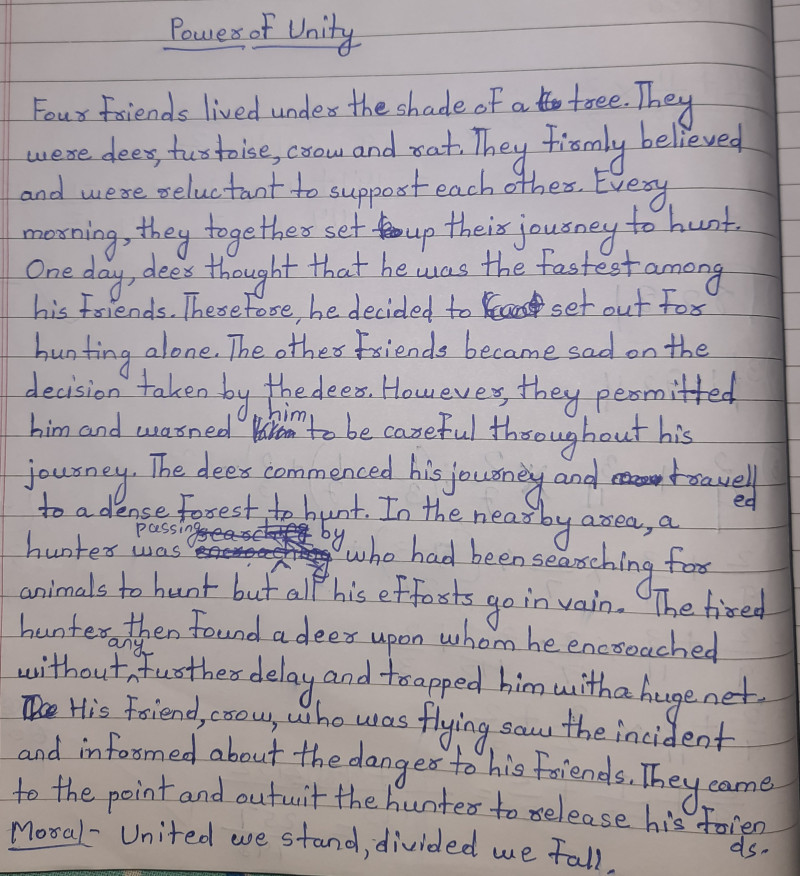 Power of Unity
Four friends lived under the shade of a tree. They
were deer, turtoise, crow and rat. They firmly believed
and were reluctant to support each other. Every
morning, they together set up their journey to hunt.
One day, deer thought that he was the fastest among
his friends. Therefore, he decided to set out for
hunting alone. The other friends became sad on the
decision taken by the deer. However, they permitted
him and warned him to be careful throughout his
journey. The deer commenced his journey and travell
ed
to a dense forest to hunt. In the nearby area, a
hunter was passing by who had been searching for
animals to hunt but all his efforts go in vain. The tired
hunter then found a deer upon whom he encroached
without any further delay and trapped him with a huge net.
His friend, crow, who was flying saw the incident
and informed about the danger to his friends. They came
to the point and outwit the hunter to release his frien
ds.
Moral- United we stand, divided we fall.